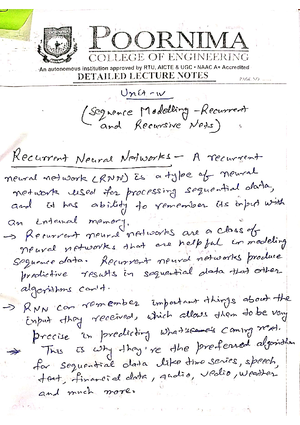 POORNIMA
COLLEGE OF ENGINEERING
An autonomous institution approved by RTU, AICTE & UGC • NAAC A+ Accredited
DETAILED LECTURE NOTES
PAGE NO.
Unit-IV
(Sequence Modelling - Recurrent
and Recursive Nets)
Recurrent Neural Networks - A recurrent
neural network (RNN) is a type of neural
network used for processing sequential data,
and it has ability to remember its input with
an internal memory.
→ Recurrent neural networks are a class of
neural networks that are helpful in modeling
sequence data. Recurrent neural networks produce
predictive results in sequential data that other
algorithms can't.
→ RNN can remember important things about the
input they received, which allows them to be very
precise in predicting what's coming next.
→ This is why they're the preferred algorithm
for sequential data like time series, speech,
text, financial data, audio, vedio, weather
and much more.